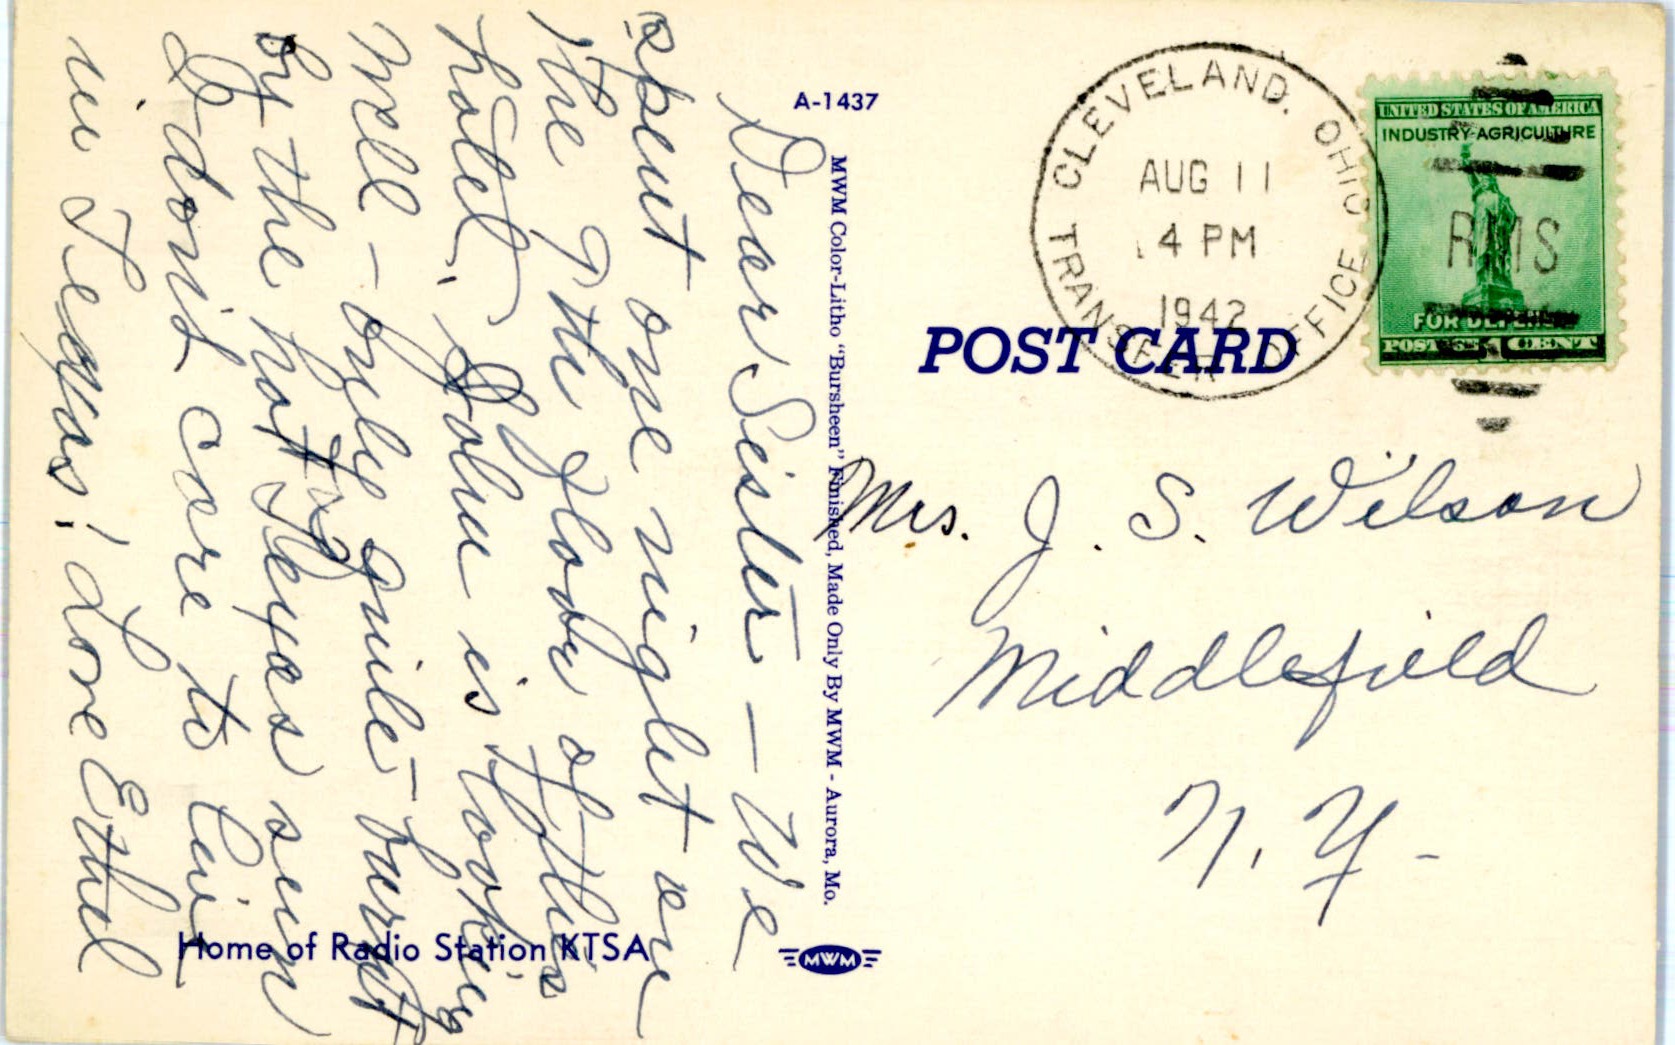 Dear Sister - We
spent one night on
the 9th floor of this
hotel. John is looking
well - only quite burnt
by the hot Texas sun
I don't care to live
in Texas! Love Ethel
Home of Radio Station KTSA
A-1437
MWM Color-Litho "Bursheen" Finished, Made Only By MWM - Aurora, Mo.
MWM
POST CARD
CLEVELAND. OHIO
AUG 11
4 PM
1942
TRANSFER OFFICE
UNITED STATES OF AMERICA
INDUSTRY-AGRICULTURE
RMS
FOR DEFENSE
POSTAGE 1 CENT
Mrs. J. S. Wilson
Middlefield
N. Y-